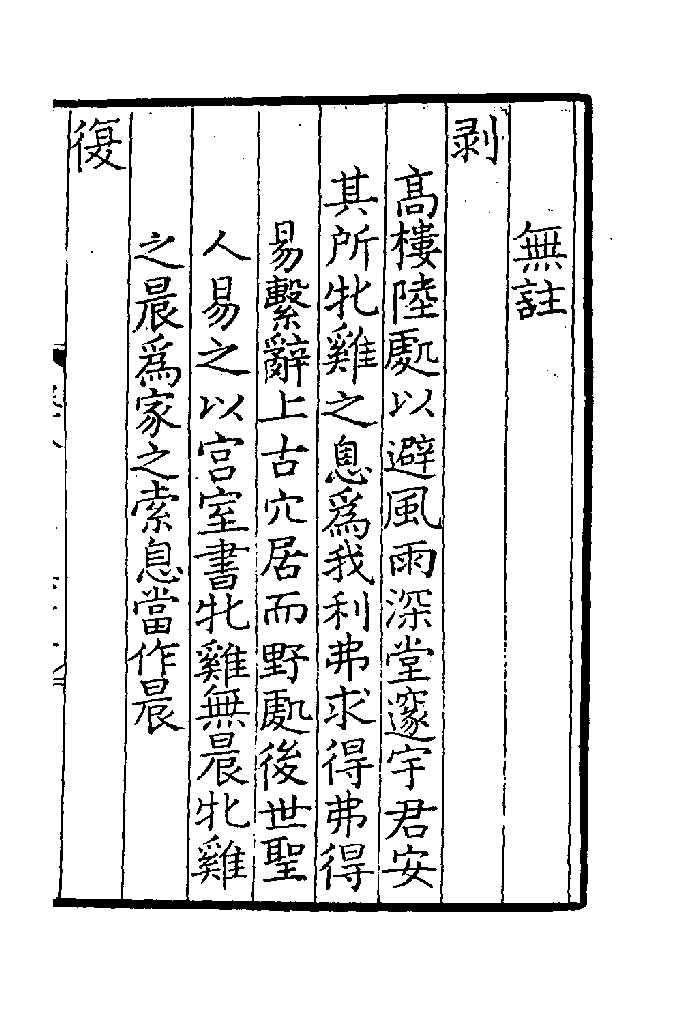 無註
剥
高樓陸處以避風雨深堂邃宇君安
其所牝雞之息爲我利弗求得弗得
易繫辭上古穴居而野處後世聖
人易之以宫室書牝雞無晨牝雞
之晨爲家之索息當作晨
復